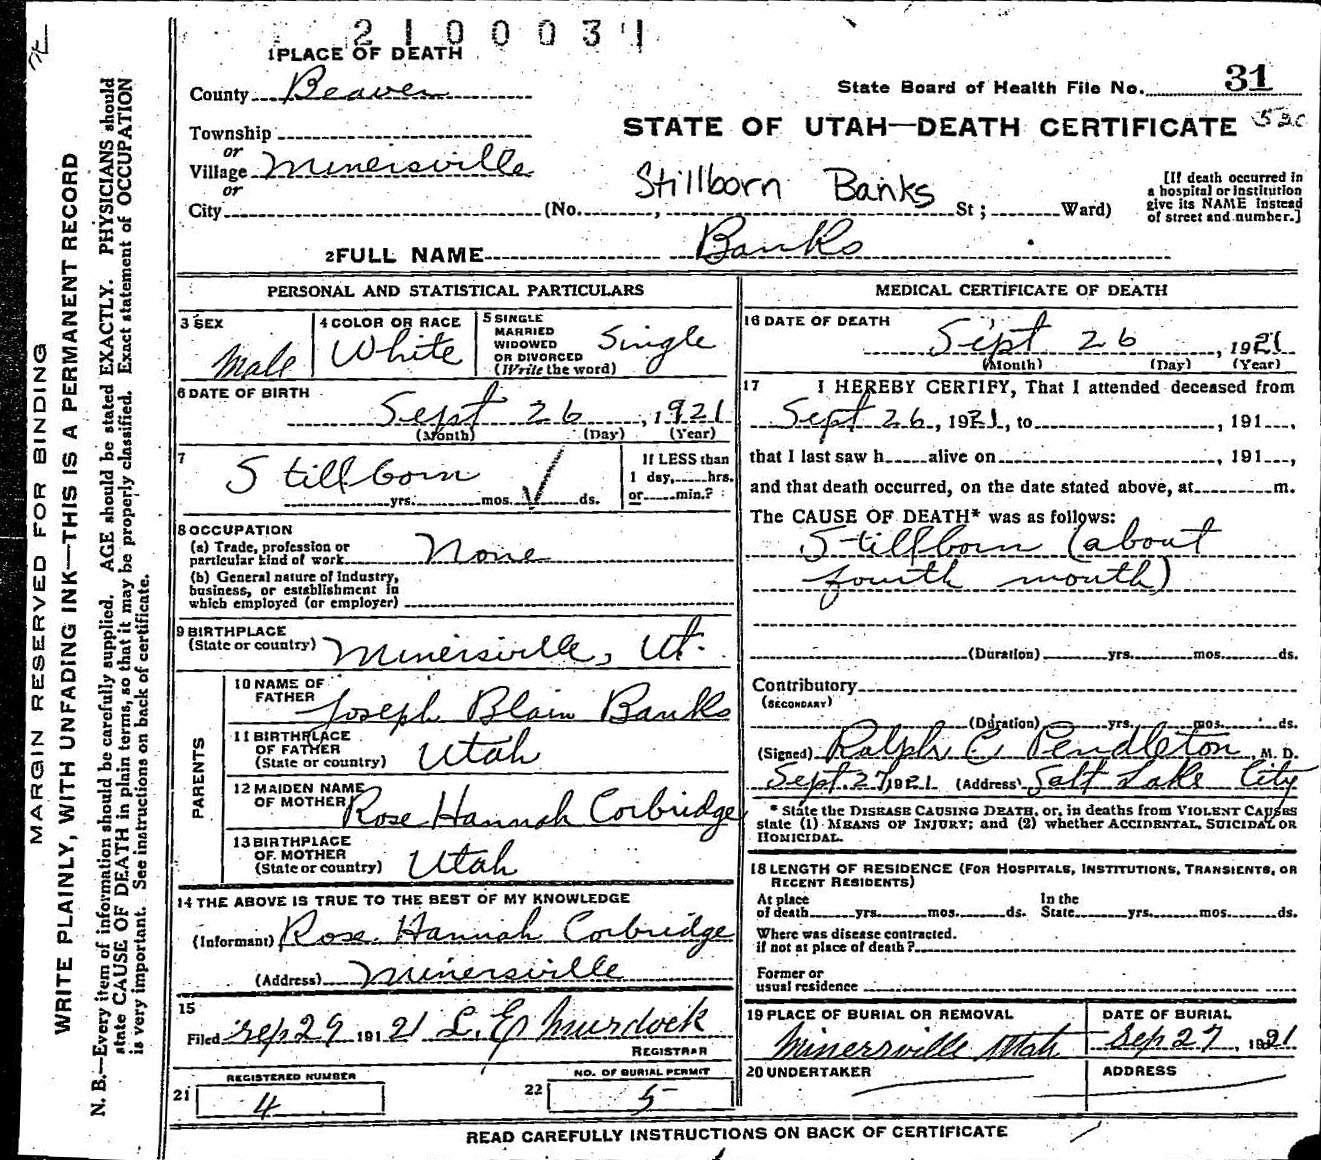 2 1 0 0 0 3 1
1 PLACE OF DEATH
County Beaver
State Board of Health File No. 31
Township
STATE OF UTAH—DEATH CERTIFICATE
or
Village Minersville
or
Stillborn Banks
City (No. , St ; Ward)
[If death occurred in
a hospital or institution
give its NAME instead
of street and number.]
2 FULL NAME Banks
PERSONAL AND STATISTICAL PARTICULARS
3 SEX
Male
4 COLOR OR RACE
White
5 SINGLE
MARRIED
WIDOWED
OR DIVORCED
(Write the word)
Single
6 DATE OF BIRTH
Sept 26, 1921
(Month) (Day) (Year)
7
Stillborn
yrs. mos. ds.
If LESS than
1 day, hrs.
or min.?
8 OCCUPATION
(a) Trade, profession or
particular kind of work None
(b) General nature of industry,
business, or establishment in
which employed (or employer)
9 BIRTHPLACE
(State or country) Minersville, Ut.
PARENTS
10 NAME OF
FATHER Joseph Blain Banks
11 BIRTHPLACE
OF FATHER
(State or country) Utah
12 MAIDEN NAME
OF MOTHER Rose Hannah Corbridge
13 BIRTHPLACE
OF MOTHER
(State or country) Utah
14 THE ABOVE IS TRUE TO THE BEST OF MY KNOWLEDGE
(Informant) Rose Hannah Corbridge
(Address) Minersville
15
Filed Sep 29 191 21 L. E. Murdock
REGISTRAR
21 REGISTERED NUMBER
4
22 NO. OF BURIAL PERMIT
5
MEDICAL CERTIFICATE OF DEATH
16 DATE OF DEATH
Sept 26, 1921
(Month) (Day) (Year)
17 I HEREBY CERTIFY, That I attended deceased from
Sept 26, 1921, to , 191 ,
that I last saw h alive on , 191 ,
and that death occurred, on the date stated above, at m.
The CAUSE OF DEATH* was as follows:
Stillborn (about
fourth month)
(Duration) yrs. mos. ds.
Contributory
(SECONDARY)
(Duration) yrs. mos. ds.
(Signed) Ralph C Pendleton, M. D.
Sept. 27, 1921 (Address) Salt Lake City
* State the DISEASE CAUSING DEATH, or, in deaths from VIOLENT CAUSES
state (1) MEANS OF INJURY; and (2) whether ACCIDENTAL, SUICIDAL OR
HOMICIDAL.
18 LENGTH OF RESIDENCE (FOR HOSPITALS, INSTITUTIONS, TRANSIENTS, OR
RECENT RESIDENTS)
At place
of death yrs. mos. ds.
In the
State yrs. mos. ds.
Where was disease contracted.
if not at place of death?
Former or
usual residence
19 PLACE OF BURIAL OR REMOVAL
Minersville Utah
DATE OF BURIAL
Sep 27, 1921
20 UNDERTAKER
ADDRESS
READ CAREFULLY INSTRUCTIONS ON BACK OF CERTIFICATE
MARGIN RESERVED FOR BINDING
WRITE PLAINLY, WITH UNFADING INK—THIS IS A PERMANENT RECORD
N. B.—Every item of information should be carefully supplied. AGE should be stated EXACTLY. PHYSICIANS should
state CAUSE OF DEATH in plain terms, so that it may be properly classified. Exact statement of OCCUPATION
is very important. See instructions on back of certificate.